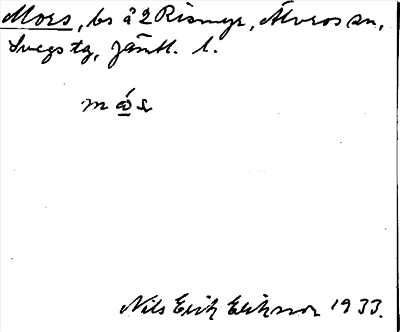 Mors, bs å 2 Rismyr, Älvros sn,
Svegs tg, Jämtl. l.
mɷ́s
Nils Erik Eriksson 1933.